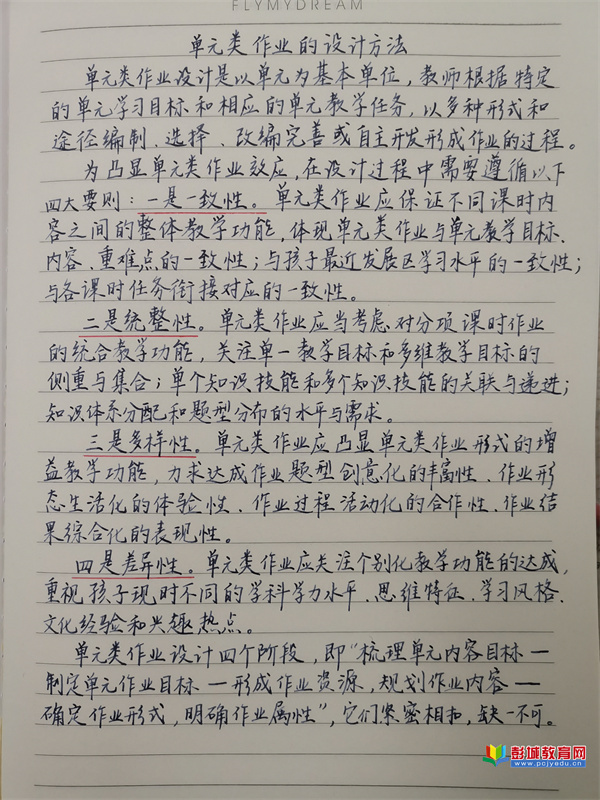 FLYMYDREAM
单元类作业的设计方法
单元类作业设计是以单元为基本单位，教师根据特定
的单元学习目标和相应的单元教学任务，以多种形式和
途径编制、选择、改编完善或自主开发形成作业的过程。
为凸显单元类作业效应，在设计过程中需要遵循以下
四大要则：一是一致性。单元类作业应保证不同课时内
容之间的整体教学功能，体现单元类作业与单元教学目标、
内容、重难点的一致性；与孩子最近发展区学习水平的一致性；
与各课时任务衔接对应的一致性。
二是统整性。单元类作业应当考虑对分项课时作业
的统合教学功能，关注单一教学目标和多维教学目标的
侧重与集合；单个知识技能和多个知识技能的关联与递进；
知识体系分配和题型分布的水平与需求。
三是多样性。单元类作业应凸显单元类作业形式的增
益教学功能，力求达成作业题型创意化的丰富性、作业形
态生活化的体验性、作业过程活动化的合作性、作业结
果综合化的表现性。
四是差异性。单元类作业应关注个别化教学功能的达成，
重视孩子现时不同的学科学力水平、思维特征、学习风格、
文化经验和兴趣热点。
单元类作业设计四个阶段，即“梳理单元内容目标—
制定单元作业目标—形成作业资源，规划作业内容—
确定作业形式，明确作业属性”，它们紧密相扣，缺一不可。
彭城教育网
www.pcjyedu.cn